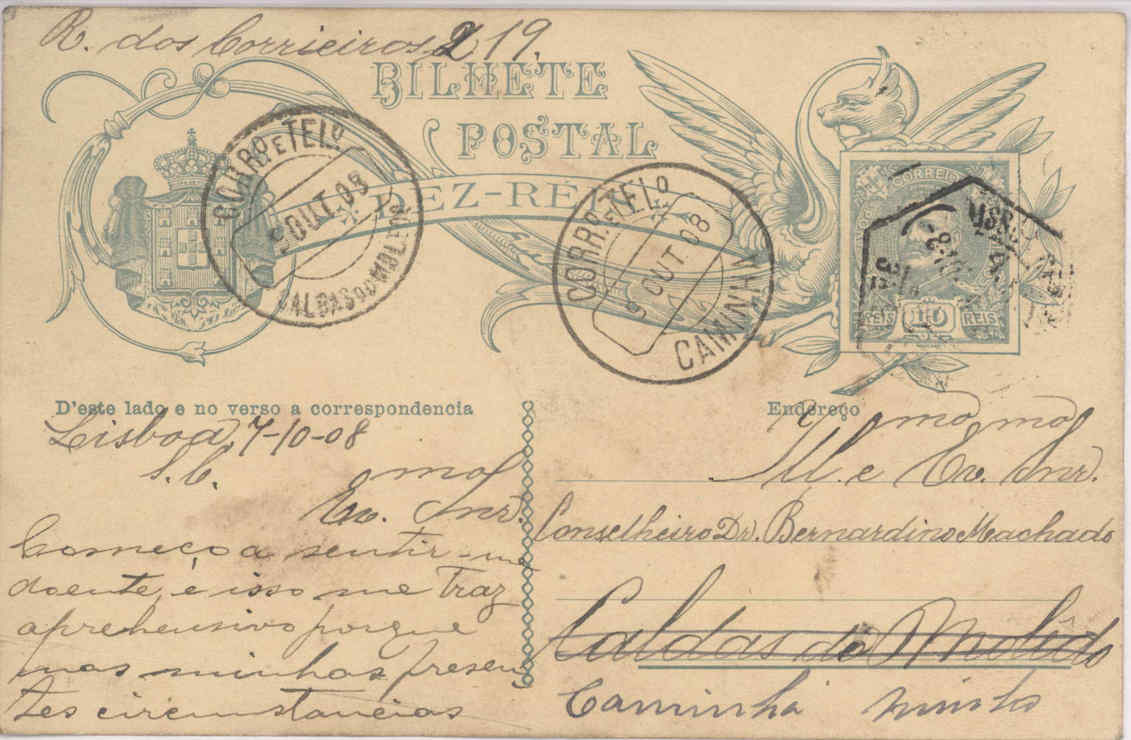 R. dos Corrieiros 219.
BILHETE
POSTAL
DEZ-RÉIS
CORREIO
REIS 10 REIS
CORR. E TEL.
OUT. 08
CALDAS DO MOLEDO
CORR. E TEL.
9 OUT. 08
CAMINHA
D'este lado e no verso a correspondencia
Lisboa, 7-10-08
S. C.
Ex.mo Snr.
Começo a sentir-me
doente, e isso me traz
aprehensivo porque
nas minhas presen
tes circunstancias
Endereço
Ill.mo e Ex.mo Snr.
Conselheiro Dr. Bernardino Machado
Caldas do Molêdo
Caminha Minho